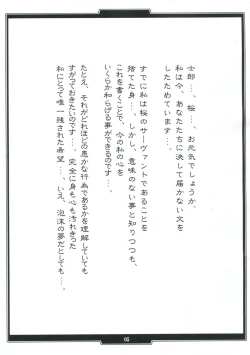 士郎…、桜…、お元気でしょうか。
私は今、あなたたちに決して届かない文を
したためています…。
すでに私は桜のサーヴァントであることを
捨てた身…、しかし、意味のない夢と知りつつも、
これを書くことで、今の私の心を
いくらか和らげる事ができるのです…。
たとえ、それがどれほどの愚かな行為であるかを理解していても
すがっておきたいのです…。完全に身も心も汚れきった
私にとって唯一残された希望…、いえ、泡沫の夢だとしても…。
05